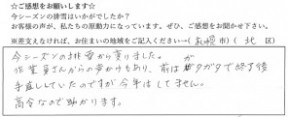 ☆ご感想をお願いします☆
今シーズンの排雪はいかがでしたか？
お客様の声が、私たちの原動力になっています。ぜひ、ご感想をお聞かせ下さい。
※差支えなければ、お住まいの地域をご記入ください→（札幌 市）（北 区）
今シーズンの排雪から変りました。
作業員さんからの声かけもあり、前はガタガタで終了後
手直ししていたのですが今年はしてません。
高令なので助かります。